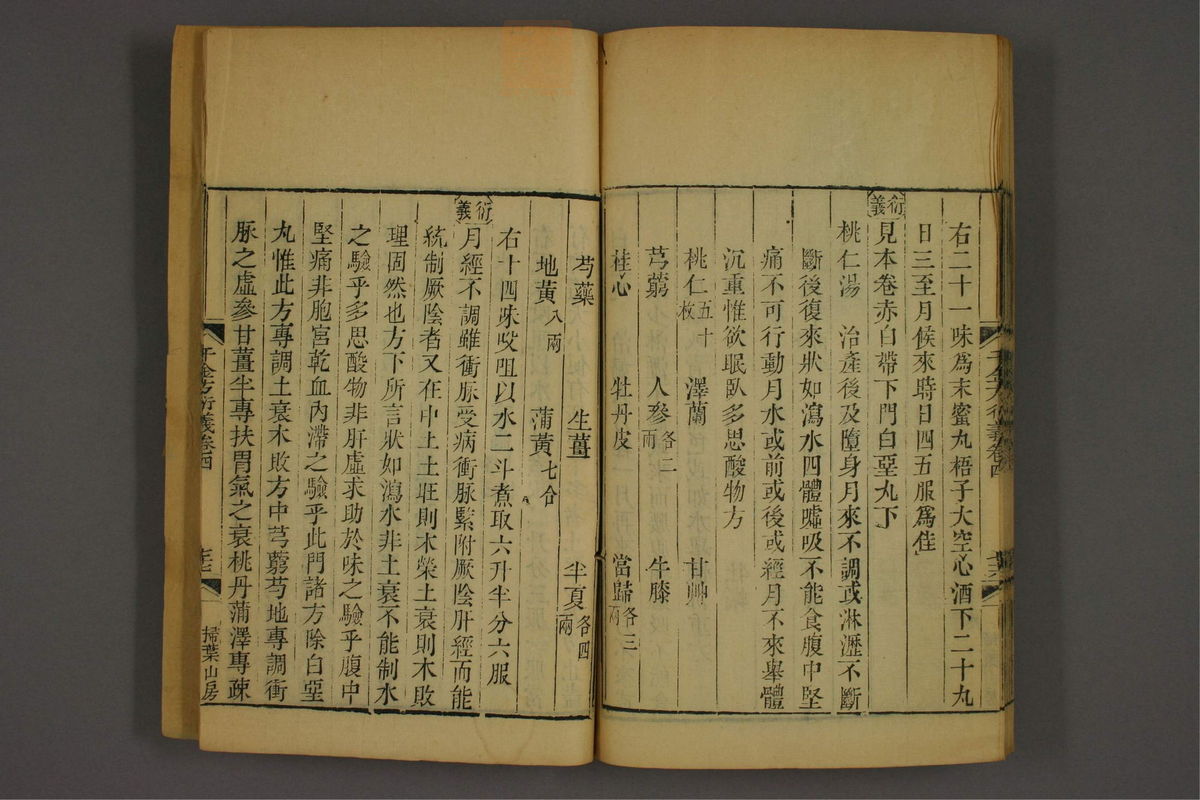 右二十一味爲末蜜丸梧子大空心酒下二十丸
日三至月候來時日四五服爲佳
衍義
見本卷赤白帶下門白堊丸下
桃仁湯　治產後及墮身月來不調或淋瀝不斷
斷後復來狀如瀉水四體噓吸不能食腹中堅
痛不可行動月水或前或後或經月不來舉體
沉重惟欲眠臥多思酸物方
桃仁五十枚　澤蘭　甘艸
芎藭　人參各二兩　牛膝
桂心　牡丹皮　當歸各三兩
芍藥　生薑　半夏各四兩
地黃八兩　蒲黃七合
右十四味㕮咀以水二斗煮取六升半分六服
衍義
月經不調雖衝脉受病衝脉緊附厥陰肝經而能
統制厥陰者又在中土土旺則木榮土衰則木敗
理固然也方下所言狀如瀉水非土衰不能制水
之驗乎多思酸物非肝虛求助於味之驗乎腹中
堅痛非胞宮乾血內滯之驗乎此門諸方除白堊
丸惟此方專調土衰木敗方中芎藭芍地專調衝
脉之虛參甘薑半專扶胃氣之衰桃丹蒲澤專疎
千金方衍義卷四
掃葉山房